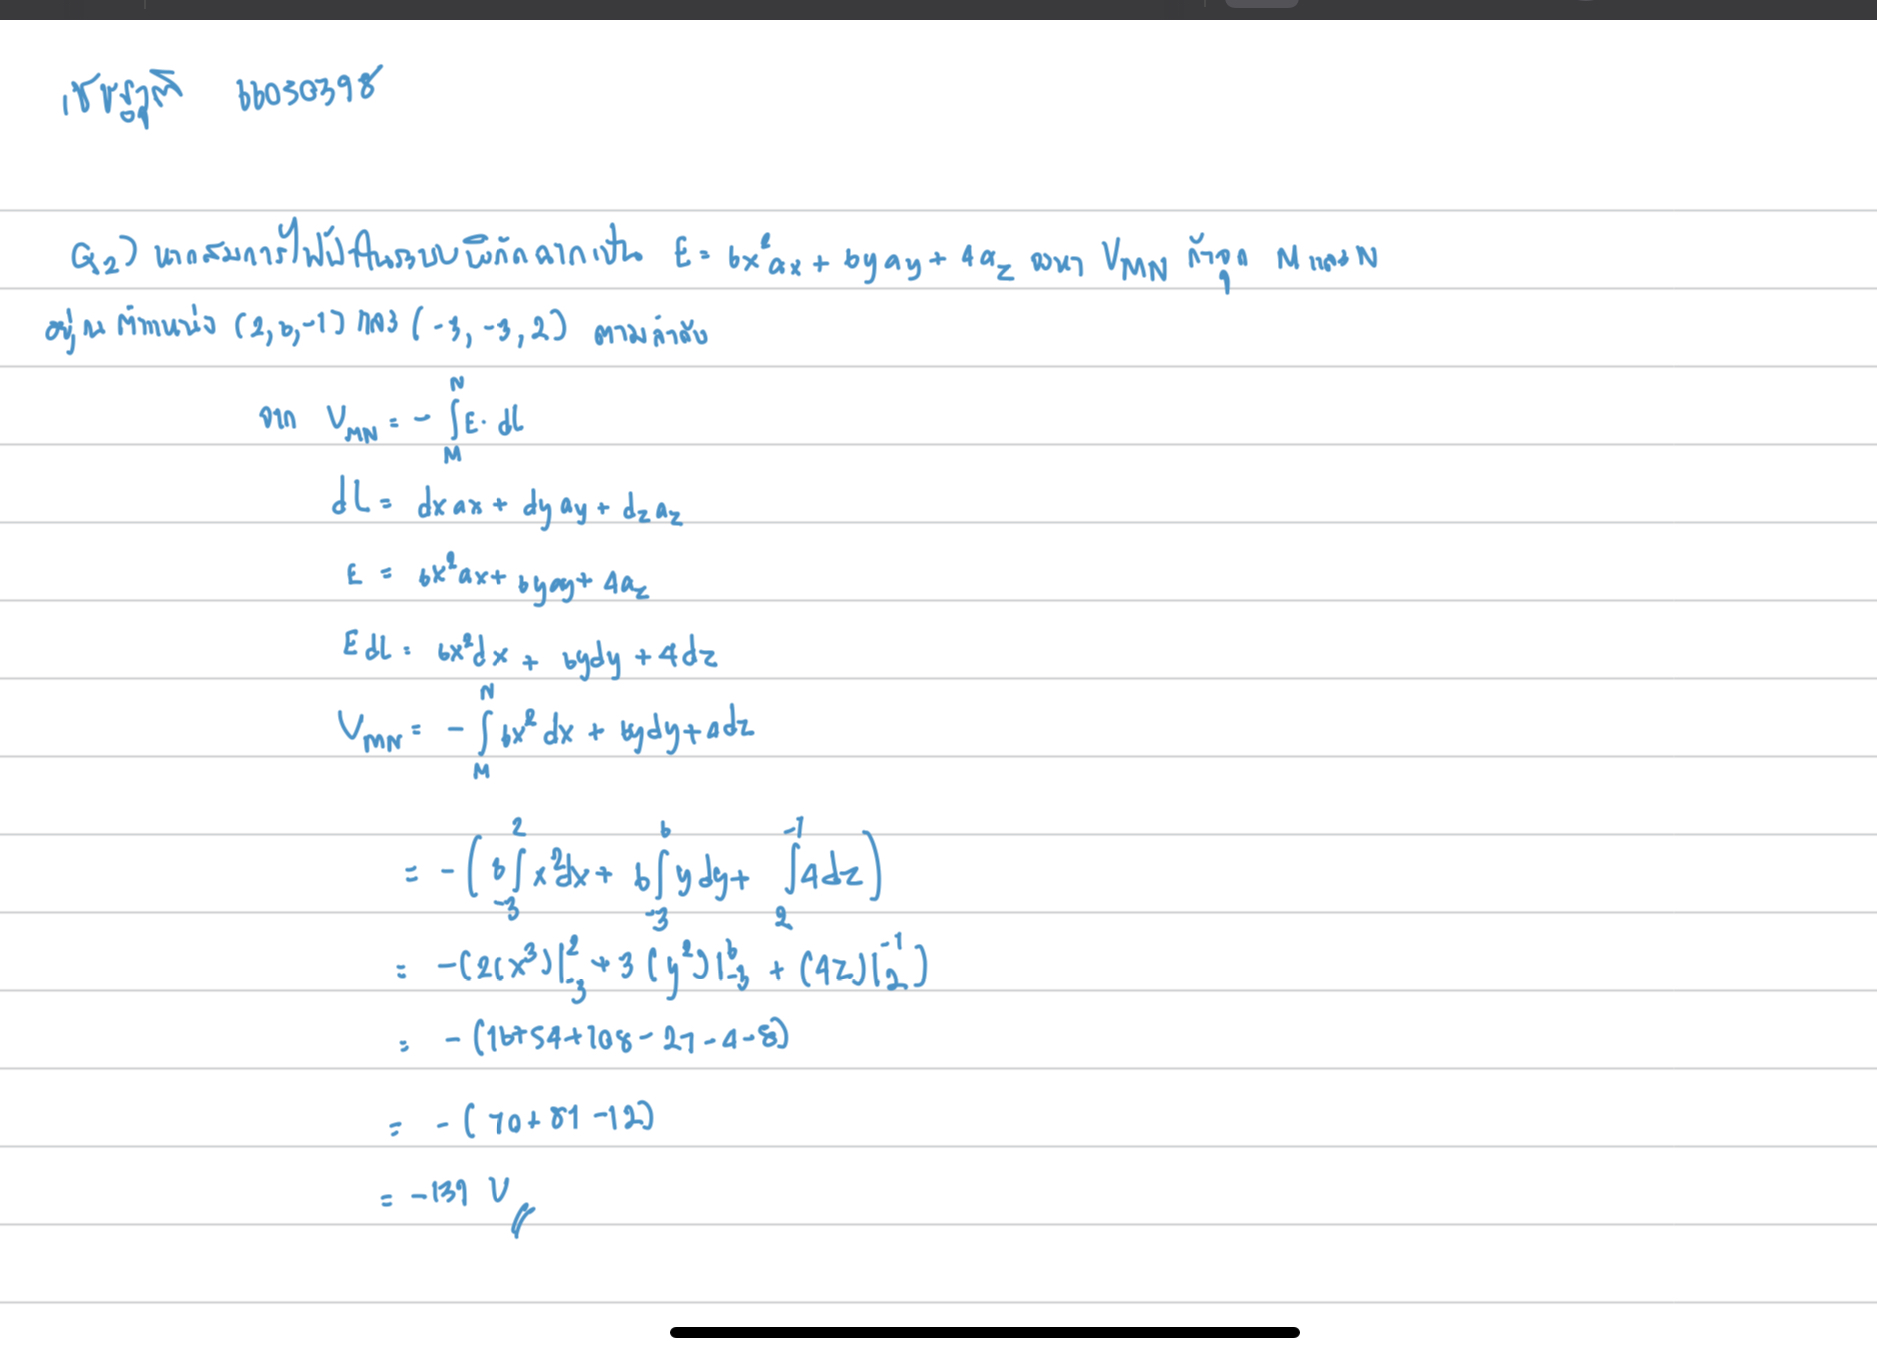 เชษฐวุฒิ 66030398
Q2) หากสมการไฟฟ้าในระบบพิกัดฉากเป็น E = 6x²ax + 6yay + 4az จงหา VMN ถ้าจุด M และ N
อยู่ ณ ตำแหน่ง (2,6,-1) และ (-3,-3,2) ตามลำดับ
จาก VMN = - ∫_M^N E · dL
dL = dxax + dyay + dzaz
E = 6x²ax + 6yay + 4az
EdL = 6x²dx + 6ydy + 4dz
VMN = - ∫_M^N 6x²dx + 6ydy + 4dz
= -( 6∫_-3^2 x²dx + 6∫_-3^6 ydy + ∫_2^-1 4dz )
= -(2(x³)|_-3^2 + 3(y²)|_-3^6 + (4z)|_2^-1)
= -(16+54+108-27-4-8)
= -(70+81-12)
= -139 V